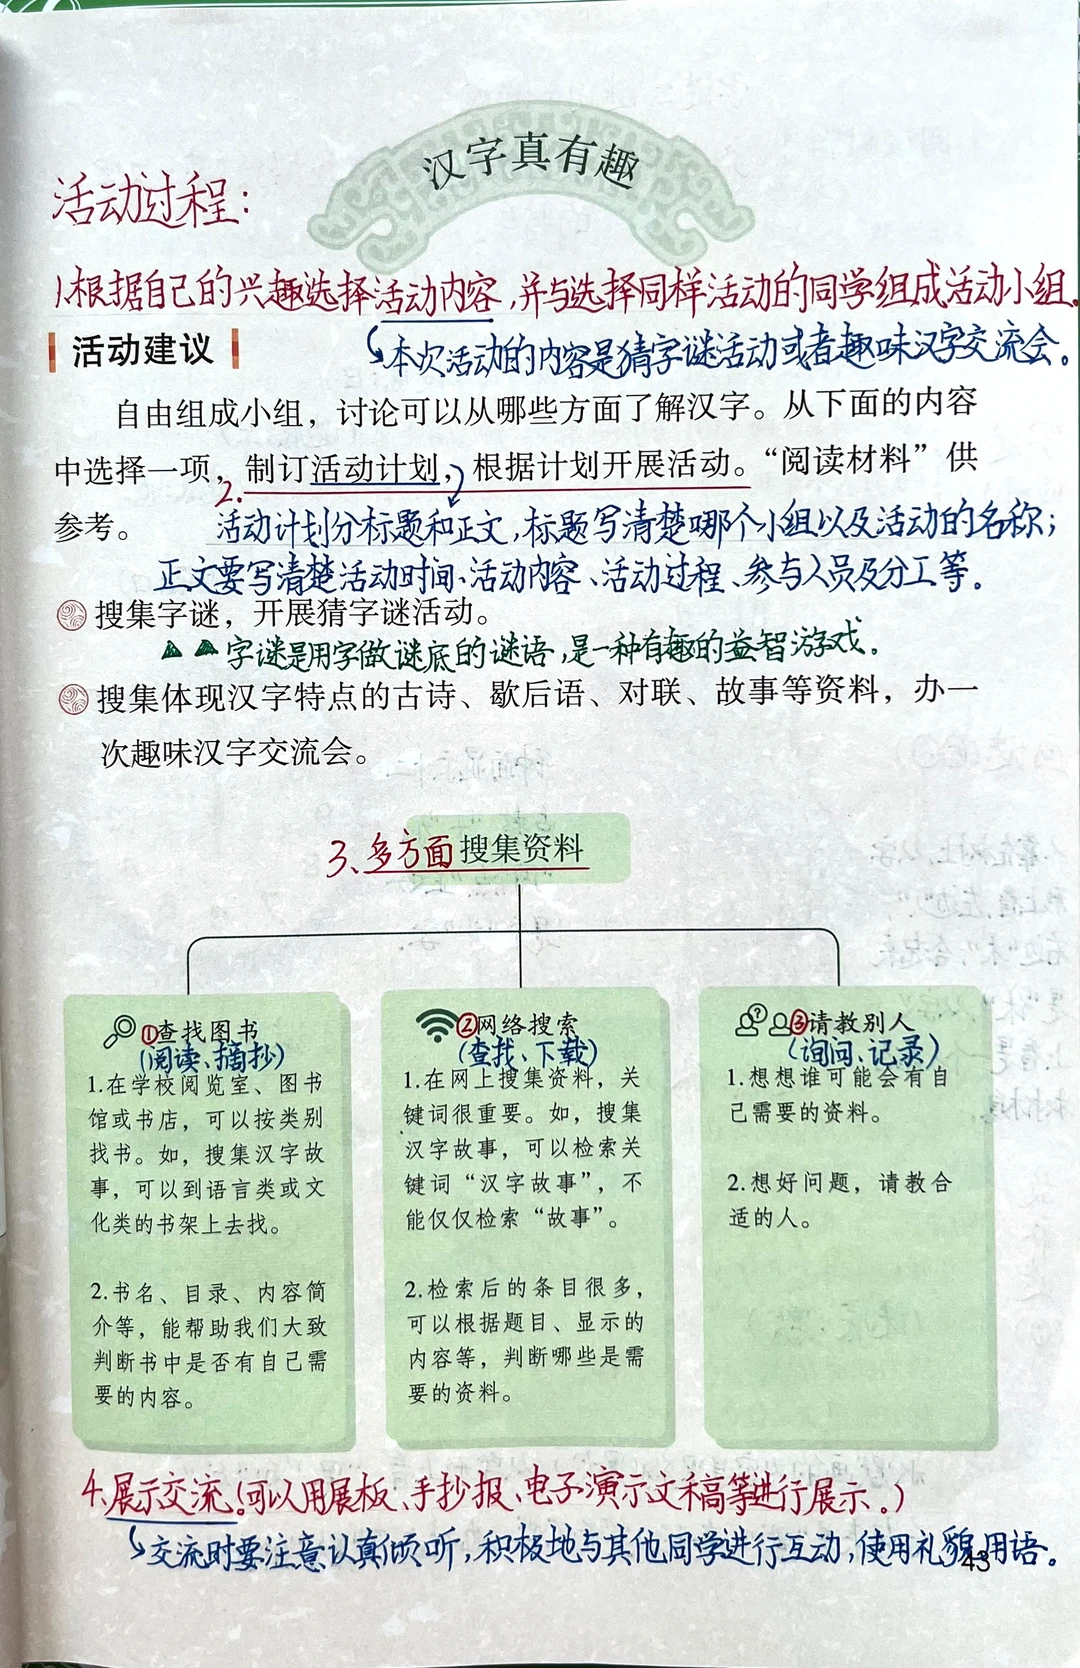 汉字真有趣
活动过程：
1.根据自己的兴趣选择活动内容，并与选择同样活动的同学组成活动小组。
活动建议
本次活动的内容是猜字谜活动或者趣味汉字交流会。
自由组成小组，讨论可以从哪些方面了解汉字。从下面的内容
中选择一项，制订活动计划，根据计划开展活动。“阅读材料”供
2.
参考。
活动计划分标题和正文，标题写清楚哪个小组以及活动的名称；
正文要写清楚活动时间、活动内容、活动过程、参与人员及分工等。
搜集字谜，开展猜字谜活动。
字谜是用字做谜底的谜语，是一种有趣的益智游戏。
搜集体现汉字特点的古诗、歇后语、对联、故事等资料，办一
次趣味汉字交流会。
3、多方面搜集资料
①查找图书
(阅读、摘抄)
1.在学校阅览室、图书
馆或书店，可以按类别
找书。如，搜集汉字故
事，可以到语言类或文
化类的书架上去找。
2.书名、目录、内容简
介等，能帮助我们大致
判断书中是否有自己需
要的内容。
②网络搜索
(查找、下载)
1.在网上搜集资料，关
键词很重要。如，搜集
汉字故事，可以检索关
键词“汉字故事”，不
能仅仅检索“故事”。
2.检索后的条目很多，
可以根据题目、显示的
内容等，判断哪些是需
要的资料。
③请教别人
(询问、记录)
1.想想谁可能会有自
己需要的资料。
2.想好问题，请教合
适的人。
4.展示交流。(可以用展板、手抄报、电子演示文稿等进行展示。)
交流时要注意认真倾听，积极地与其他同学进行互动，使用礼貌用语。
43